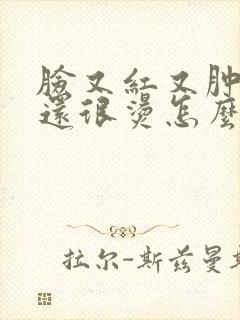 臉又紅又肿
還很燙怎麼
拉尔-斯兹曼